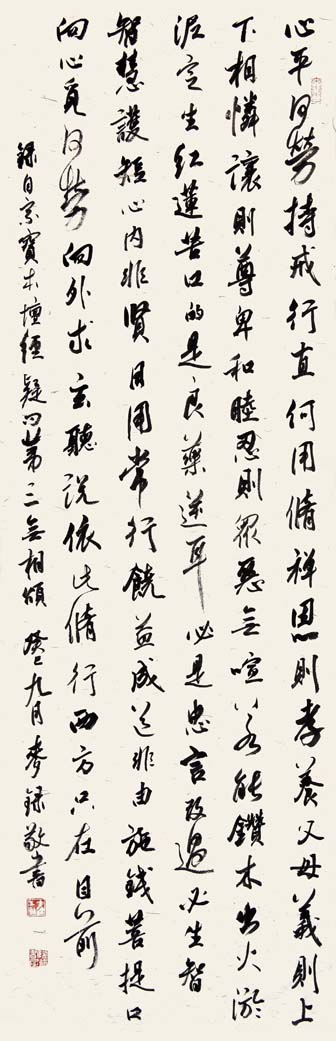 心平何勞持戒行直何用脩禪恩則孝養父母義則上
下相憐讓則尊卑和睦忍則眾惡無喧若能鑽木出火淤
泥定生紅蓮苦口的是良藥逆耳必是忠言改過必生智
智慧護短心內非賢日用常行饒益成道非由施錢菩提只
向心覓何勞向外求玄聽說依此脩行西方只在目前
錄自宗寶本壇經疑問第三無相頌 癸巳九月 麥録敬書